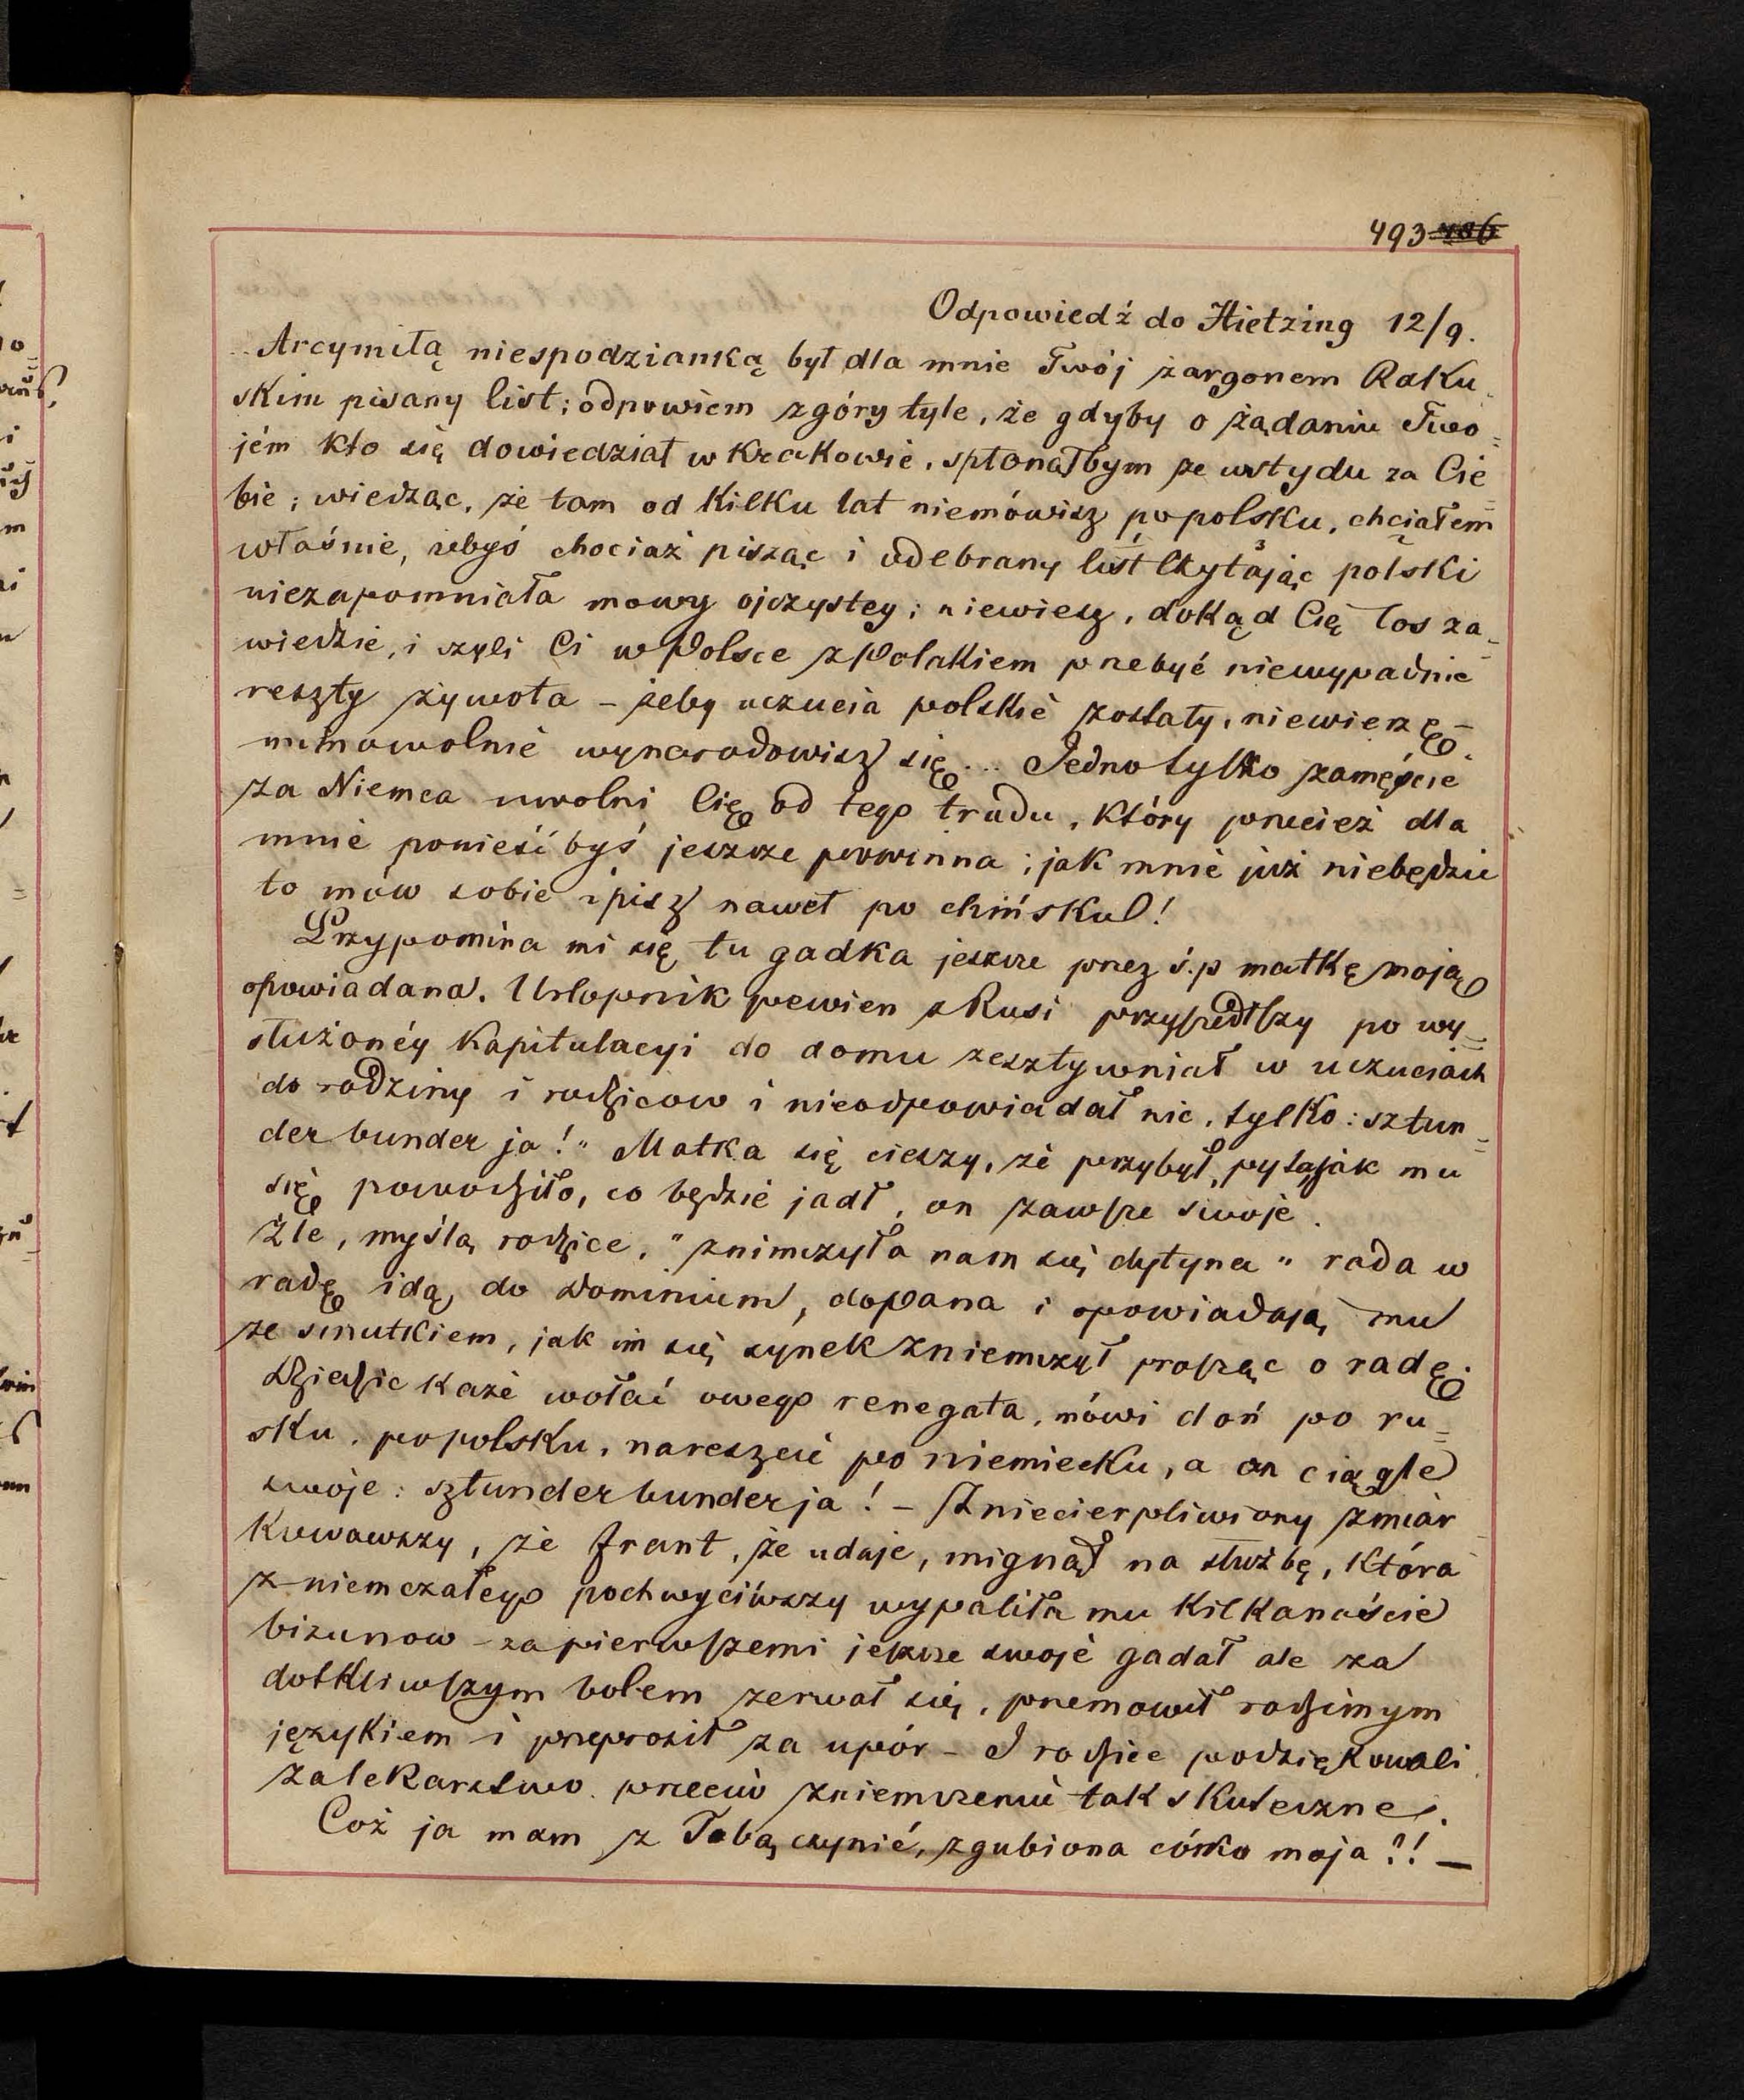 493 486
Odpowiedź do Hietzing 12/9.
Arcymiłą niespodzianką był dla mnie Twój żargonem Raku-
skim pisany list; odpowiem zgóry tyle, że gdyby o żądaniu Two=
jém kto się dowiedział w Krakowie, spłonąłbym ze wstydu za Cie=
bie; wiedząc, że tam od kilku lat niemówisz po polsku, chciałem
właśnie, żebyś chociaż pisząc i odebrany list czytając polski
niezapomniała mowy ojczystey; niewiesz, dokąd Cię los za=
wiedzie, i czyli Ci w Polsce z Polakiem przebyć niewypadnie
reszty żywota – żeby uczucia polskie zostały, niewierzę –
mimowolnie wynarodowisz się... Jedno tylko zamęście
za Niemca uwolni Cię od tego trudu, który przecież dla
mnie ponieść byś jeszcze powinna; jak mnie już niebędzie
to mów sobie i pisz nawet po chińsku!
Przypomina mi się tu gadka jeszcze przez ś.p matkę moją
opowiadana. Urlopnik pewien z Rusi przyszedłszy po wy=
służonéy Kapitulacyi do domu zesztywniał w uczuciach
do rodziny i rodziców i nieodpowiadał nic, tylko: sztun=
der bunder ja!" Matka się cieszy, że przybył, pyta jak mu
się powodziło, co będzie jadł, on zawsze swoje.
Źle, myślą rodzice, "znimczyła nam się dytyna" rada w
radę idą do Dominium, do Pana i opowiadają mu
ze smutkiem, jak im się synek zniemczył prosząc o radę.
Dziedzic każe wołać owego renegata, mówi doń po ru=
sku, po polsku, nareszcie po niemiecku, a on ciągle
swoje: sztunder bunder ja! – Zniecierpliwiony zmiar
kowawszy, że frant, że udaje, mignął na służbę, która
zniemczałego pochwyciwszy wypaliła mu kilkanaście
bizunow – za pierwszemi jeszcze swoje gadał ale za
dotkliwszym bolem zerwał się, przemowił rodzimym
językiem i przeprosił za upór – I rodzice podziękowali
za lekarstwo przeciw zniemczeniu tak skuteczne.
Coż ja mam z Tobą czynić, zgubiona córko moja?! –